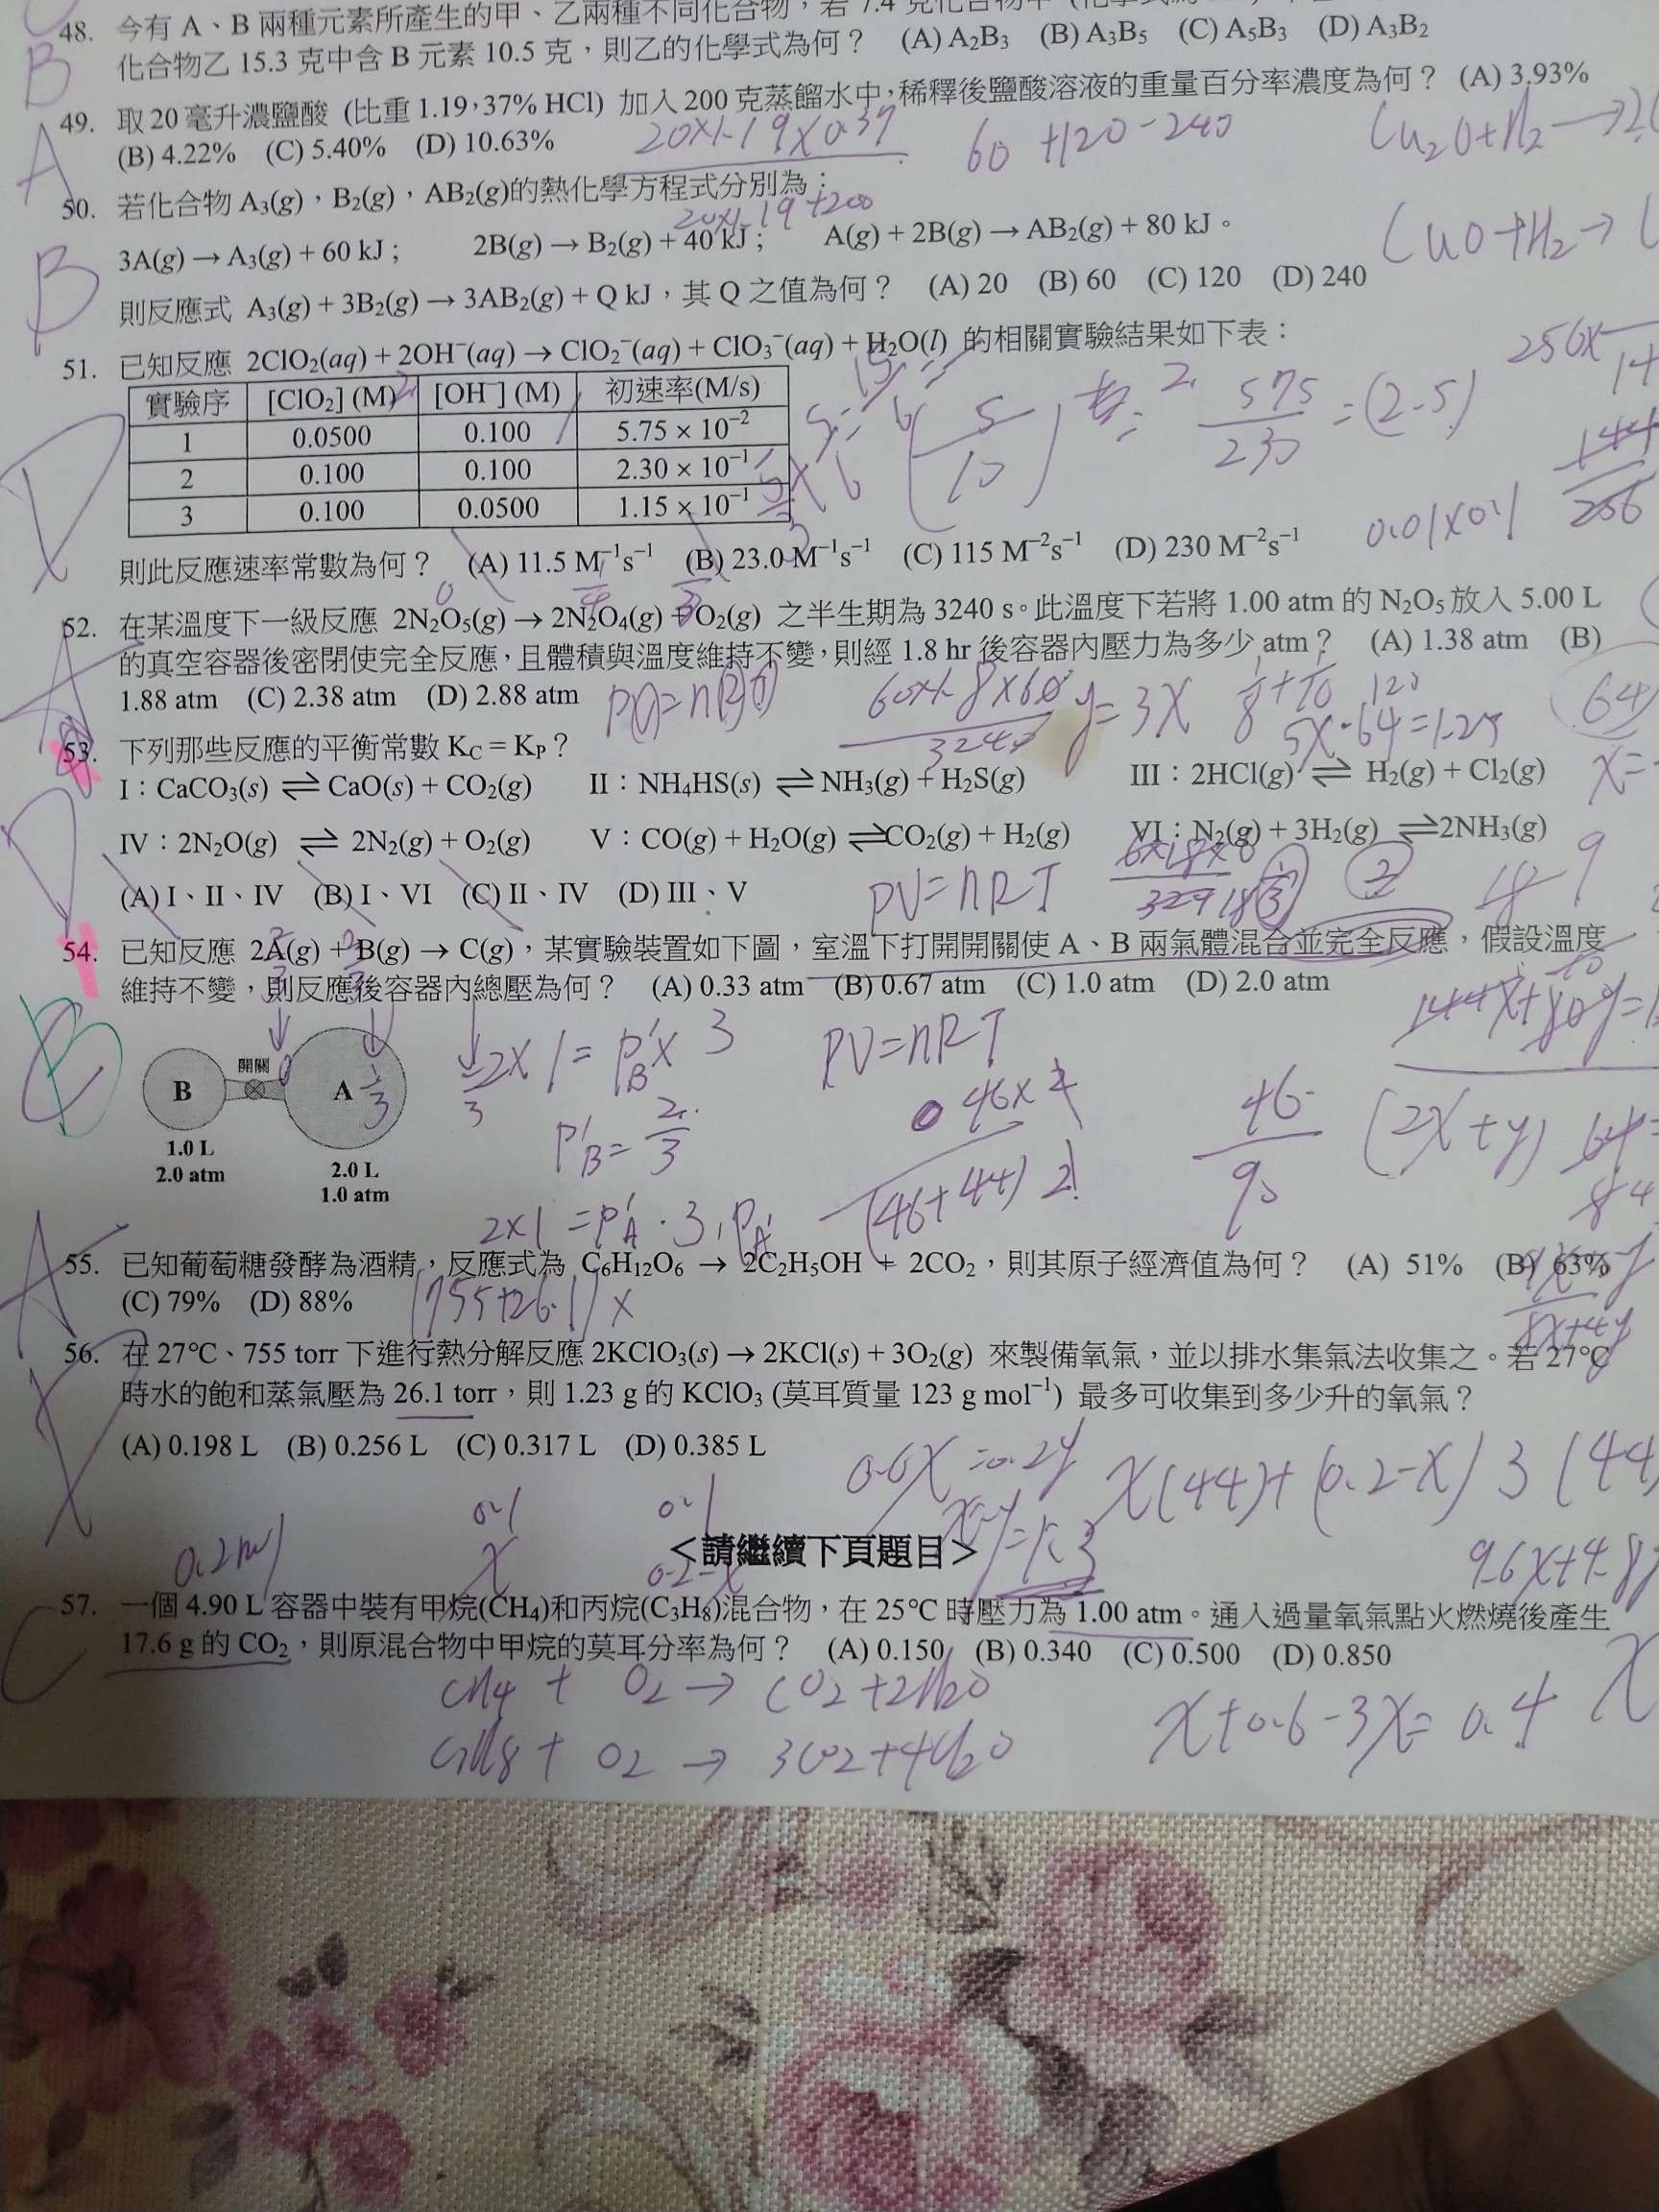 48. 今有 A、B 兩種元素所產生的甲、乙兩種不同化合物，若 7.4 克化合物甲
化合物乙 15.3 克中含 B 元素 10.5 克，則乙的化學式為何？ (A) A₂B₃ (B) A₃B₅ (C) A₅B₃ (D) A₃B₂
B
49. 取 20 毫升濃鹽酸 (比重 1.19，37% HCl) 加入 200 克蒸餾水中，稀釋後鹽酸溶液的重量百分率濃度為何？ (A) 3.93%
(B) 4.22% (C) 5.40% (D) 10.63%
A
20×1.19×0.37
20×1.19+200
60+120-240
Cu₂O+H₂→2
50. 若化合物 A₃(g)，B₂(g)，AB₂(g)的熱化學方程式分別為：
3A(g) → A₃(g) + 60 kJ； 2B(g) → B₂(g) + 40 kJ； A(g) + 2B(g) → AB₂(g) + 80 kJ。
CuO+H₂→
則反應式 A₃(g) + 3B₂(g) → 3AB₂(g) + Q kJ，其 Q 之值為何？ (A) 20 (B) 60 (C) 120 (D) 240
B
51. 已知反應 2ClO₂(aq) + 2OH⁻(aq) → ClO₂⁻(aq) + ClO₃⁻(aq) + H₂O(l) 的相關實驗結果如下表：
實驗序 [ClO₂] (M) [OH⁻] (M) 初速率(M/s)
1 0.0500 0.100 5.75 × 10⁻²
2 0.100 0.100 2.30 × 10⁻¹
3 0.100 0.0500 1.15 × 10⁻¹
575/230 = (2.5)
0.01×0.1
則此反應速率常數為何？ (A) 11.5 M⁻¹s⁻¹ (B) 23.0 M⁻¹s⁻¹ (C) 115 M⁻²s⁻¹ (D) 230 M⁻²s⁻¹
D
52. 在某溫度下一級反應 2N₂O₅(g) → 2N₂O₄(g) + O₂(g) 之半生期為 3240 s。此溫度下若將 1.00 atm 的 N₂O₅ 放入 5.00 L
的真空容器後密閉使完全反應，且體積與溫度維持不變，則經 1.8 hr 後容器內壓力為多少 atm？ (A) 1.38 atm (B)
1.88 atm (C) 2.38 atm (D) 2.88 atm
A
60×1.8×60
3240
y=3x
64
53. 下列那些反應的平衡常數 K_C = K_P？
I：CaCO₃(s) ⇌ CaO(s) + CO₂(g) II：NH₄HS(s) ⇌ NH₃(g) + H₂S(g) III：2HCl(g) ⇌ H₂(g) + Cl₂(g)
IV：2N₂O(g) ⇌ 2N₂(g) + O₂(g) V：CO(g) + H₂O(g) ⇌ CO₂(g) + H₂(g) VI：N₂(g) + 3H₂(g) ⇌ 2NH₃(g)
(A) I、II、IV (B) I、VI (C) II、IV (D) III、V
D
PV=nRT
54. 已知反應 2A(g) + B(g) → C(g)，某實驗裝置如下圖，室溫下打開開關使 A、B 兩氣體混合並完全反應，假設溫度
維持不變，則反應後容器內總壓為何？ (A) 0.33 atm (B) 0.67 atm (C) 1.0 atm (D) 2.0 atm
B
開關
B A
1.0 L
2.0 atm
2.0 L
1.0 atm
2×1=P'B×3
P'B=2/3
2×1=P'A·3, P'A
PV=nRT
46×2
(46+44)2
46
90
(2x+y)
55. 已知葡萄糖發酵為酒精，反應式為 C₆H₁₂O₆ → 2C₂H₅OH + 2CO₂，則其原子經濟值為何？ (A) 51% (B) 63%
(C) 79% (D) 88%
A
(755+26.1)x
56. 在 27°C、755 torr 下進行熱分解反應 2KClO₃(s) → 2KCl(s) + 3O₂(g) 來製備氧氣，並以排水集氣法收集之。若 27°C
時水的飽和蒸氣壓為 26.1 torr，則 1.23 g 的 KClO₃ (莫耳質量 123 g mol⁻¹) 最多可收集到多少升的氧氣？
(A) 0.198 L (B) 0.256 L (C) 0.317 L (D) 0.385 L
0.6x=0.2y
x(44)+(0.2-x)3(44
0.1 0.1
0.2 x 0.2-x
<請繼續下頁題目>
57. 一個 4.90 L 容器中裝有甲烷(CH₄)和丙烷(C₃H₈)混合物，在 25°C 時壓力為 1.00 atm。通入過量氧氣點火燃燒後產生
17.6 g 的 CO₂，則原混合物中甲烷的莫耳分率為何？ (A) 0.150 (B) 0.340 (C) 0.500 (D) 0.850
C
CH₄ + O₂ → CO₂+2H₂O
C₃H₈ + O₂ → 3CO₂+4H₂O
x+0.6-3x=0.4